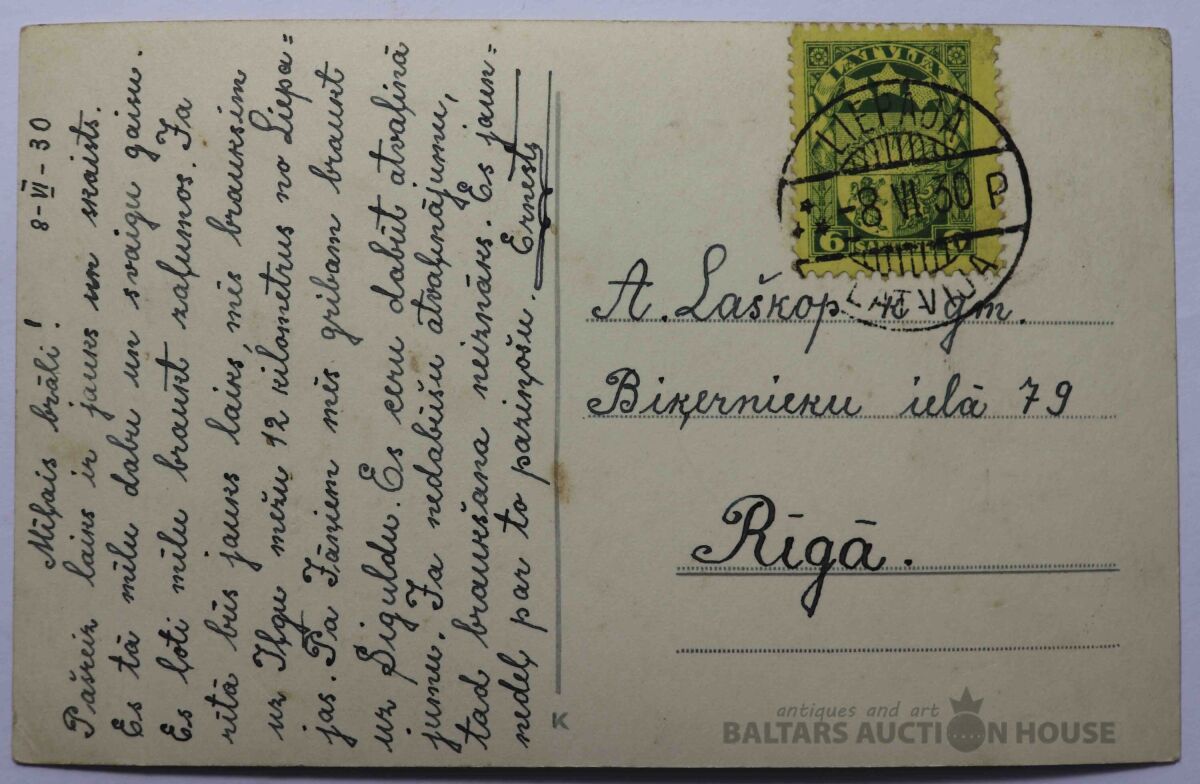 8-VI-30
Mīļais brāli!
Pašreiz laiks ir jauks un skaists.
Es tā mīlu dabu un svaigu gaisu.
Es ļoti mīlu braukt zaļumos. Ja
rītā būs jauks laiks, mēs brauksim
uz Ilgu mežu 12 kilometrus no Liepa=
jas. Pa Jāņiem mēs gribam braukt
uz Siguldu. Es ceru dabūt atvaļinā
jumu. Ja nedabūšu atvaļinājumu,
tad braukšana neiznāks. Es jaun=
nedeļ par to pariņošu. Ernests
LATVIJA
6
LIEPAJA
-8 VI 30 P
LATVIJA
A. Laškop kgm.
Biķernieku ielā 79
Rīgā.
K
antiques and art
BALTARS AUCTION HOUSE